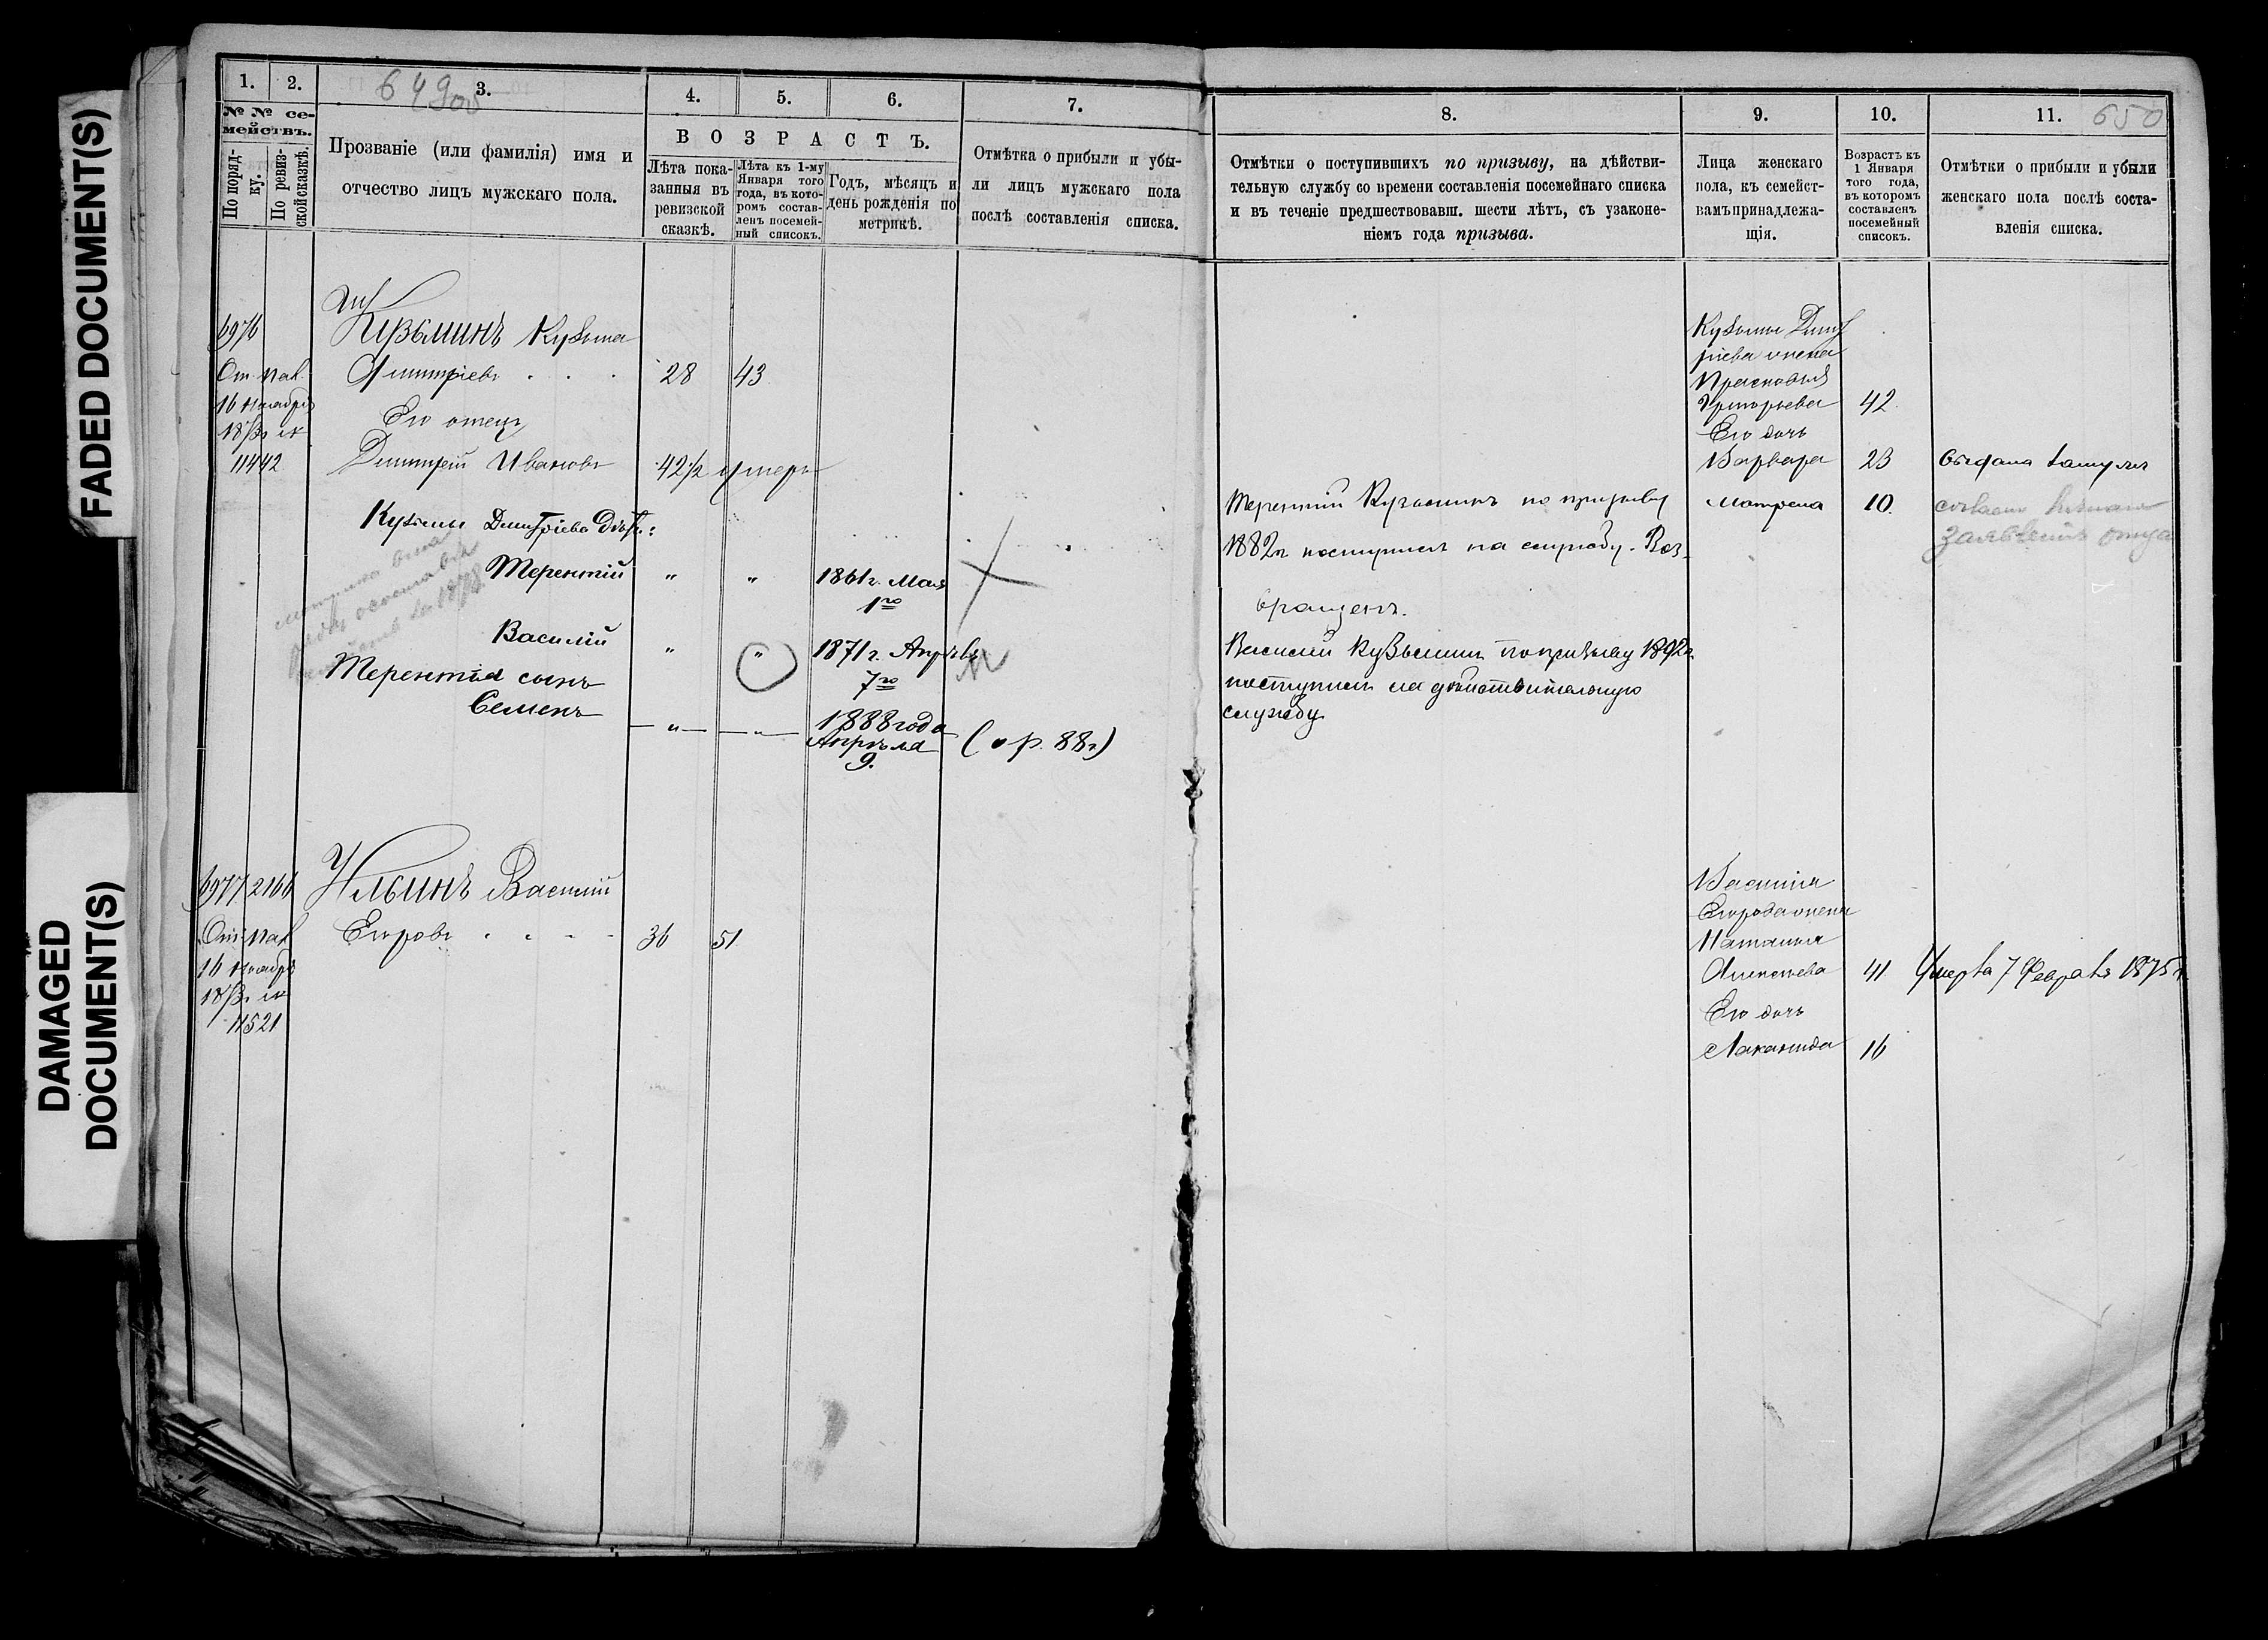 FADED DOCUMENT(S)
DAMAGED
DOCUMENT(S)
1.
2.
3.
4.
5.
6.
7.
№ № се-
мействъ.
По поряд-
ку.
По ревиз-
ской сказкѣ.
Прозваніе (или фамилія) имя и
отчество лицъ мужскаго пола.
ВОЗРАСТЪ.
Лѣта пока-
занныя въ
ревизской
сказкѣ.
Лѣта къ 1-му
Января того
года, въ кото-
ромъ состав-
ленъ посемей-
ный списокъ.
Годъ, мѣсяцъ и
день рожденія по
метрикѣ.
Отмѣтка о прибыли и убы-
ли лицъ мужскаго пола
послѣ составленія списка.
6976
16 Ноября
11442
Кузьминъ Кузьма
Дмитріевъ
28 43
Его отецъ
Дмитрій Ивановъ 42½ умеръ
Кузьмы Дмитріева дѣти:
Терентій " " 1861 г. Мая
1го
Василій " " 1871 г. Апрѣля
7го
Терентія сынъ
Семенъ " " 1888 года
Апрѣля
9.
(о р. 88 г)
6977 2166
16 Ноября
11521
Ильинъ Василій
Егоровъ 36 51
8.
9.
10.
11.
650
Отмѣтки о поступившихъ по призыву, на дѣйстви-
тельную службу со времени составленія посемейнаго списка
и въ теченіе предшествовавш. шести лѣтъ, съ узаконе-
ніемъ года призыва.
Лица женскаго
пола, къ семейст-
вамъ принадлежа-
щія.
Возрастъ къ
1 Января
того года,
въ которомъ
составленъ
посемейный
списокъ.
Отмѣтки о прибыли и убыли
женскаго пола послѣ соста-
вленія списка.
Кузьмы Дмит
ріева жена
Прасковья
Григорьева 42
Его дочь
Варвара 23 Выдана замужъ
Матрена 10
заявленія отца
Терентій Кузьминъ по призыву
1882 г. поступилъ на службу. Воз-
вращенъ.
Василій Кузьминъ по призыву 1892 г.
поступилъ на дѣйствительную
службу
Василія
Егорова жена
Наталья
Алексѣева 41 Умерла 7 Февраля 1875 г.
Его дочь
16